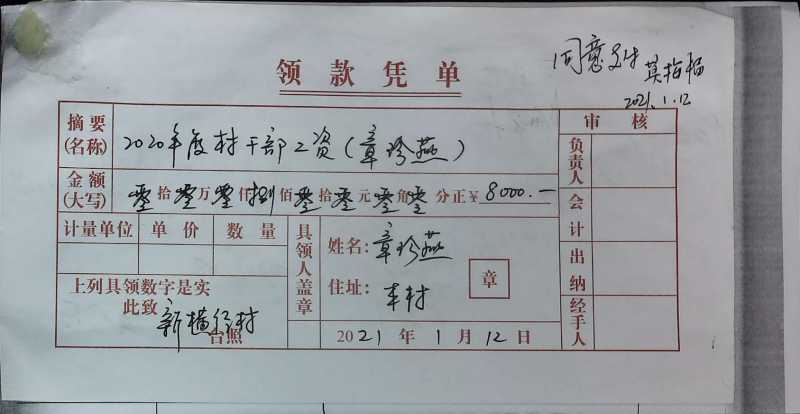 领款凭单
同意支付 莫指杨
2021.1.12
摘要(名称) 2020年度村干部工资(章珍燕)
审核
负责人
金额(大写) 零拾零万零仟捌佰零拾零元零角零分正¥8000.—
会计
计量单位 单价 数量
具领人盖章
姓名:章珍燕
出纳
上列具领数字是实
住址:本村
章
此致
新横径村
台照
2021年1月12日
经手人